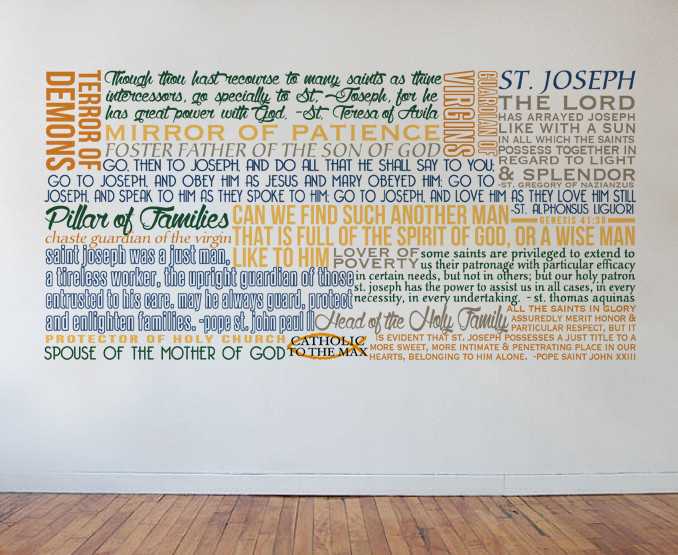 TERROR OF
DEMONS
Though thou hast recourse to many saints as thine
intercessors, go specially to St. Joseph, for he
has great power with God. -St. Teresa of Avila
MIRROR OF PATIENCE
FOSTER FATHER OF THE SON OF GOD
GUARDIAN OF
VIRGINS
ST. JOSEPH
THE LORD
HAS ARRAYED JOSEPH
LIKE WITH A SUN
IN ALL WHICH THE SAINTS
POSSESS TOGETHER IN
REGARD TO LIGHT
& SPLENDOR
-ST. GREGORY OF NAZIANZUS
GO, THEN TO JOSEPH, AND DO ALL THAT HE SHALL SAY TO YOU;
GO TO JOSEPH, AND OBEY HIM AS JESUS AND MARY OBEYED HIM; GO TO
JOSEPH, AND SPEAK TO HIM AS THEY SPOKE TO HIM; GO TO JOSEPH, AND LOVE HIM AS THEY LOVE HIM STILL
-ST. ALPHONSUS LIGUORI
Pillar of Families
chaste guardian of the virgin
CAN WE FIND SUCH ANOTHER MAN
GENESIS 41:38
THAT IS FULL OF THE SPIRIT OF GOD, OR A WISE MAN
LIKE TO HIM
saint joseph was a just man,
a tireless worker, the upright guardian of those
entrusted to his care. may he always guard, protect
and enlighten families. -pope st. john paul II
LOVER OF
POVERTY
some saints are privileged to extend to
us their patronage with particular efficacy
in certain needs, but not in others; but our holy patron
st. joseph has the power to assist us in all cases, in every
necessity, in every undertaking. - st. thomas aquinas
Head of the Holy Family
PROTECTOR OF HOLY CHURCH
SPOUSE OF THE MOTHER OF GOD
CATHOLIC
TO THE MAX
ALL THE SAINTS IN GLORY
ASSUREDLY MERIT HONOR &
PARTICULAR RESPECT, BUT IT
IS EVIDENT THAT ST. JOSEPH POSSESSES A JUST TITLE TO A
MORE SWEET, MORE INTIMATE & PENETRATING PLACE IN OUR
HEARTS, BELONGING TO HIM ALONE. -POPE SAINT JOHN XXIII